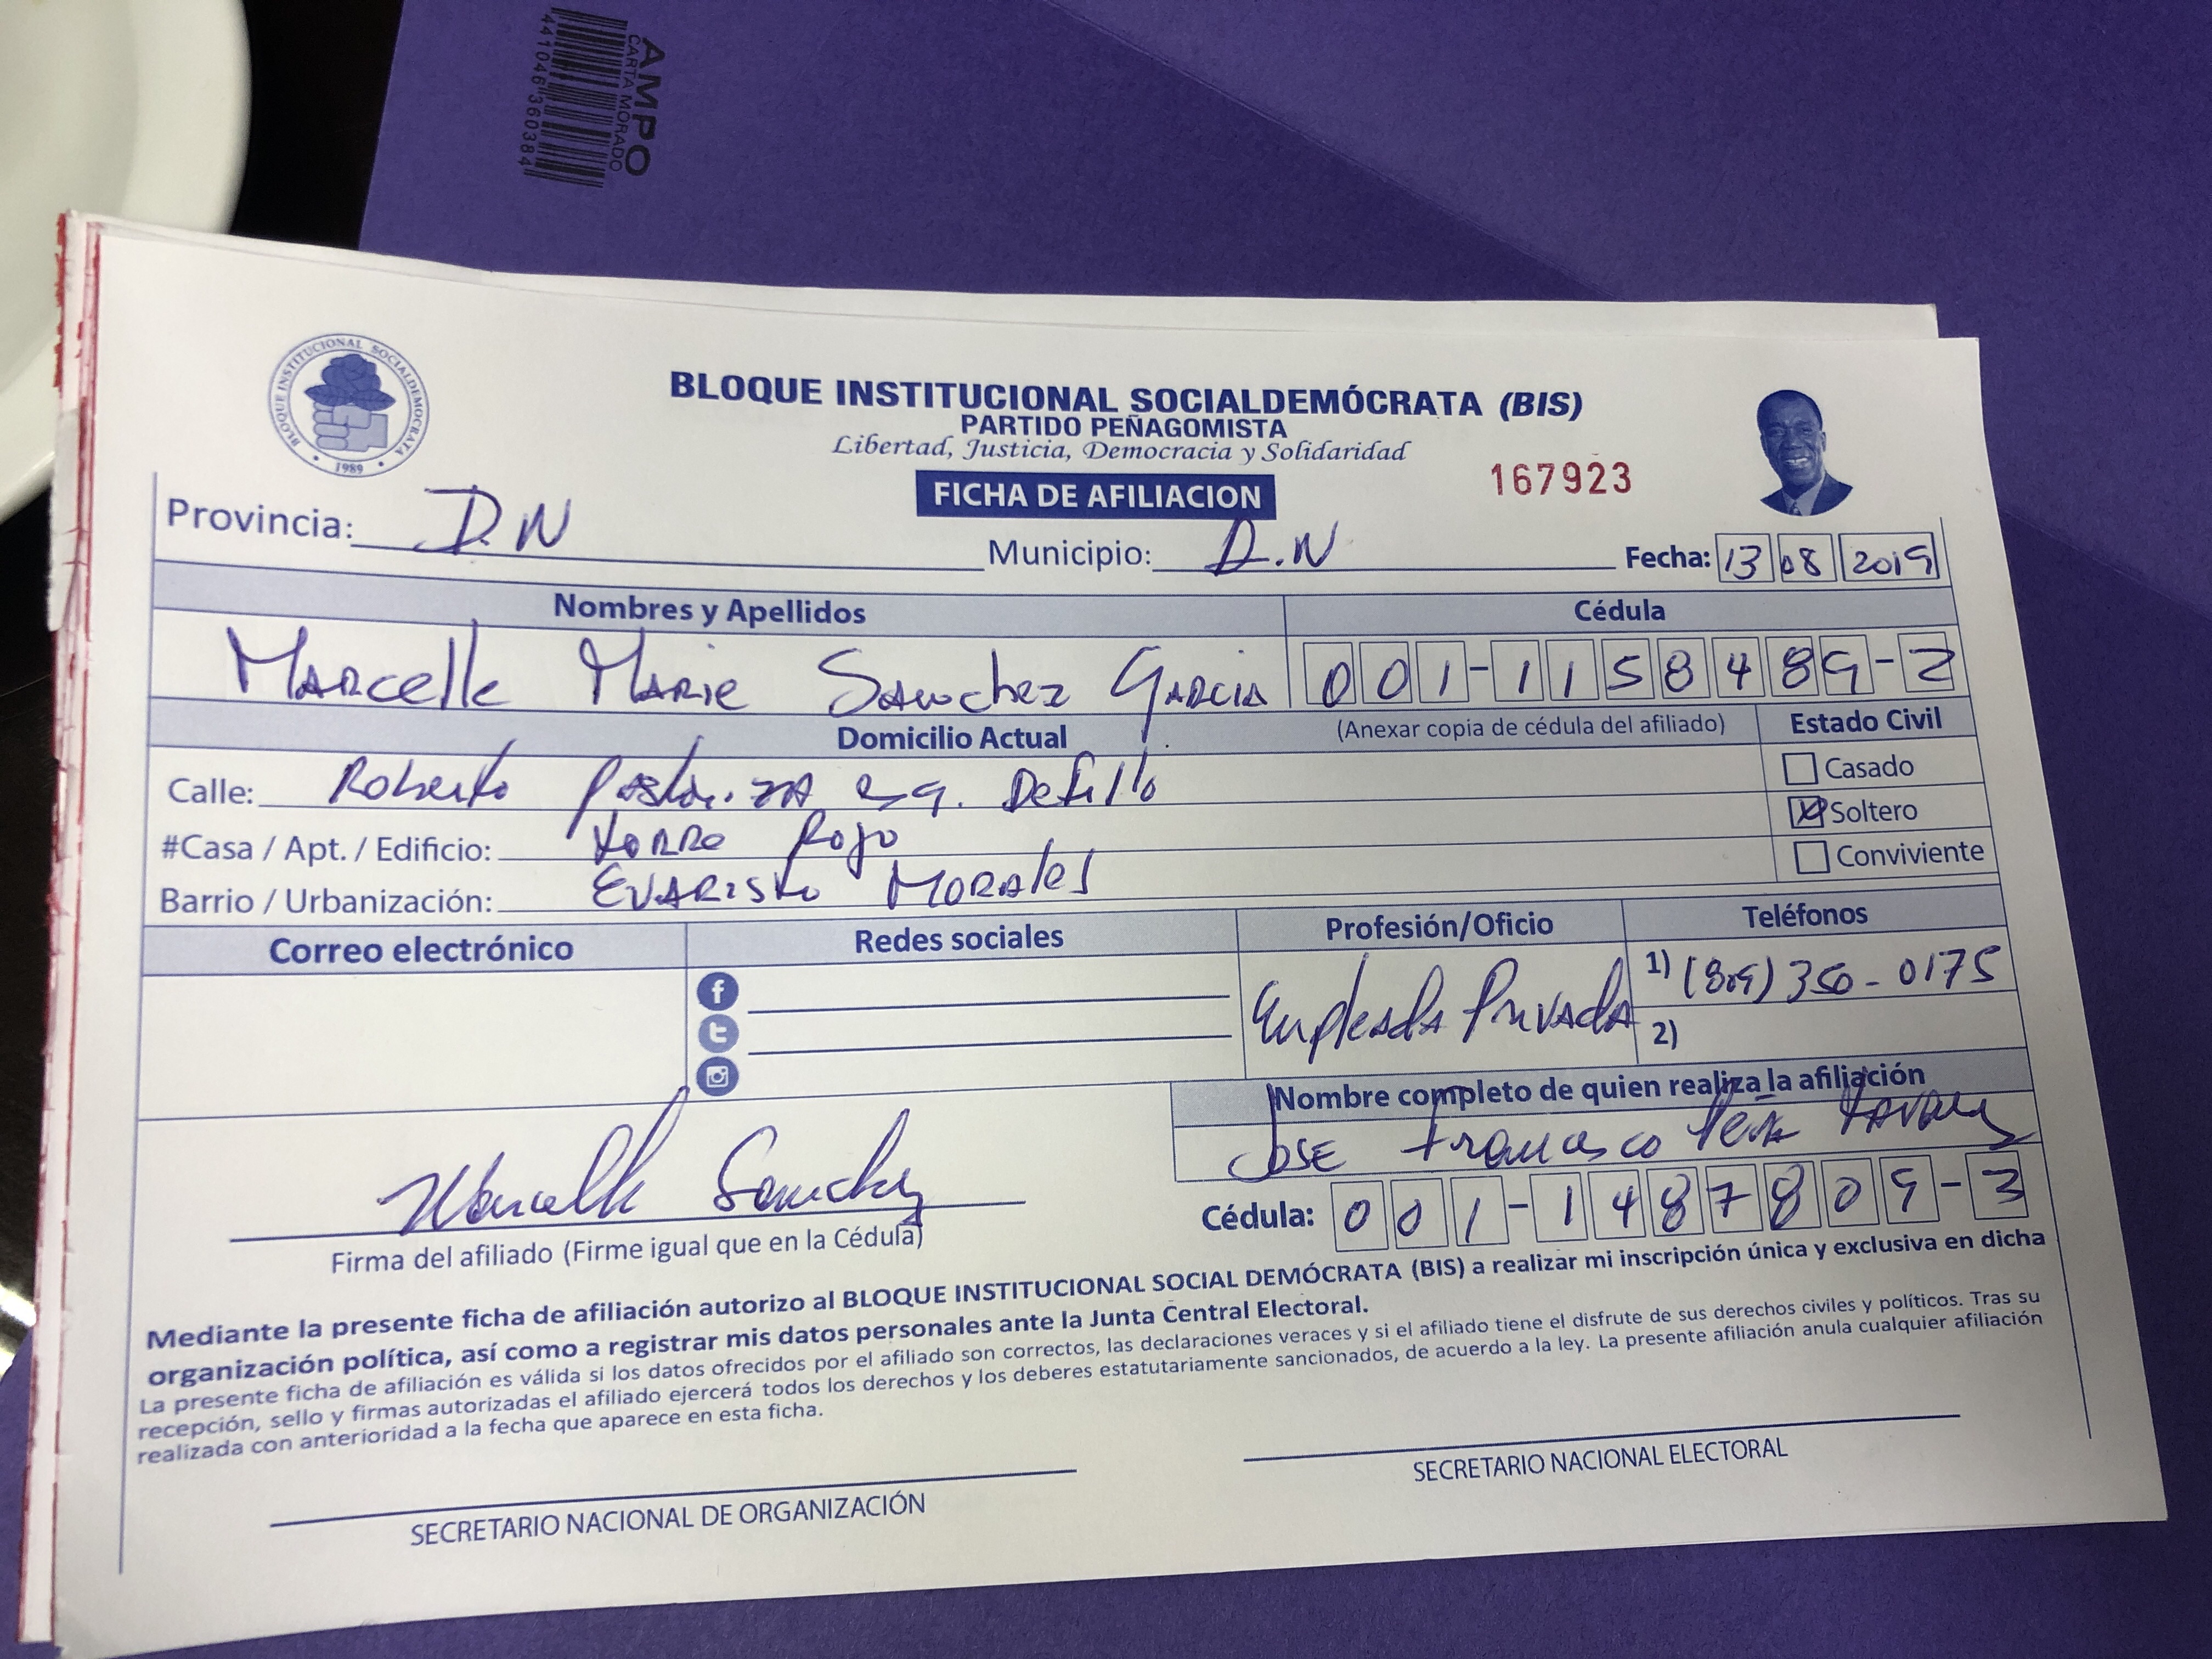 AMPO
CARTA MORADO
441046 360384
BLOQUE INSTITUCIONAL SOCIALDEMOCRATA
1989
BLOQUE INSTITUCIONAL SOCIALDEMÓCRATA (BIS)
PARTIDO PEÑAGOMISTA
Libertad, Justicia, Democracia y Solidaridad
FICHA DE AFILIACION
167923
Provincia: D.N
Municipio: D.N
Fecha: 13 08 2019
Nombres y Apellidos
Cédula
Marcelle Marie Sanchez Garcia
001-1158489-2
Domicilio Actual
(Anexar copia de cédula del afiliado)
Estado Civil
Calle: Roberto Pastoriza esq. Defillo
Casado
#Casa / Apt. / Edificio: Torre Rojo
Soltero
Barrio / Urbanización: Evaristo Morales
Conviviente
Correo electrónico
Redes sociales
Profesión/Oficio
Teléfonos
Empleada Privada
1) (809) 350-0175
2)
Nombre completo de quien realiza la afiliación
Jose Francisco Peña Tavarez
Marcelle Sanchez
Cédula: 001-1487809-3
Firma del afiliado (Firme igual que en la Cédula)
Mediante la presente ficha de afiliación autorizo al BLOQUE INSTITUCIONAL SOCIAL DEMÓCRATA (BIS) a realizar mi inscripción única y exclusiva en dicha
organización política, así como a registrar mis datos personales ante la Junta Central Electoral.
La presente ficha de afiliación es válida si los datos ofrecidos por el afiliado son correctos, las declaraciones veraces y si el afiliado tiene el disfrute de sus derechos civiles y políticos. Tras su
recepción, sello y firmas autorizadas el afiliado ejercerá todos los derechos y los deberes estatutariamente sancionados, de acuerdo a la ley. La presente afiliación anula cualquier afiliación
realizada con anterioridad a la fecha que aparece en esta ficha.
SECRETARIO NACIONAL DE ORGANIZACIÓN
SECRETARIO NACIONAL ELECTORAL